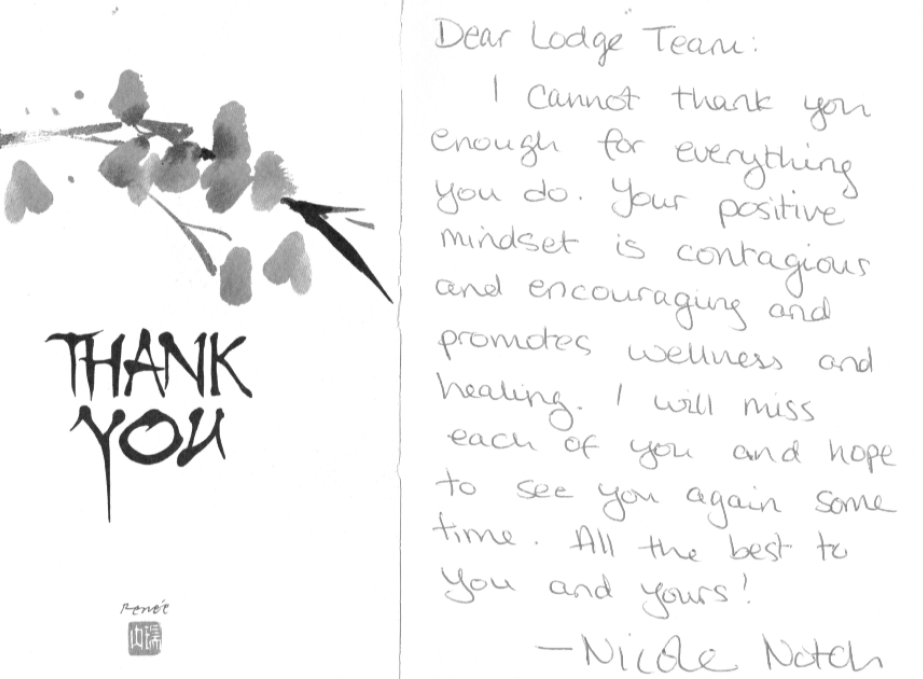 THANK
YOU
Renée
Dear Lodge Team:
I cannot thank you
enough for everything
you do. Your positive
mindset is contagious
and encouraging and
promotes wellness and
healing. I will miss
each of you and hope
to see you again some
time. All the best to
you and yours!
—Nicole Notch